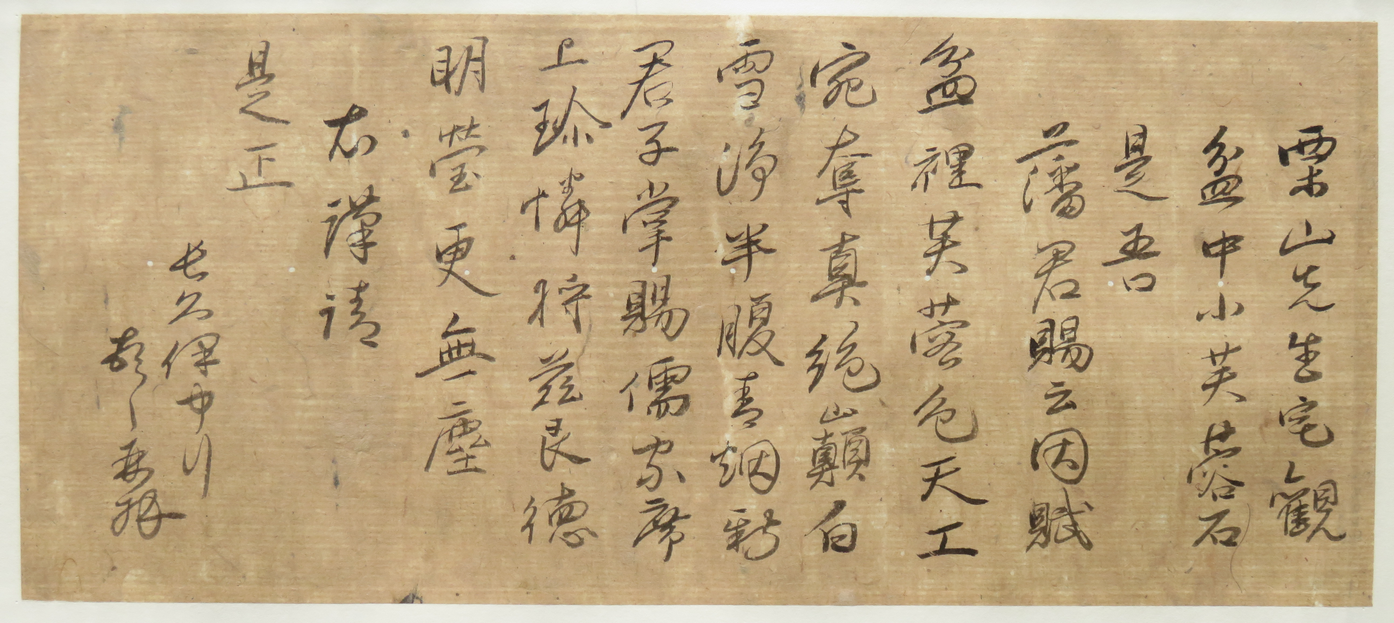 栗山先生宅観
盆中小芙蓉石
是吾
藩君賜云因賦
盆裡芙蓉色天工
宛奪真絶巓白
雪浄半腹青烟新
君子掌賜儒家席
上珍憐将茲艮徳
明瑩更無塵
右謹請
是正
長久保中行
頓首再拝